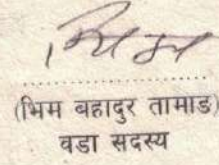 (भिम बहादुर तामाङ)
वडा सदस्य